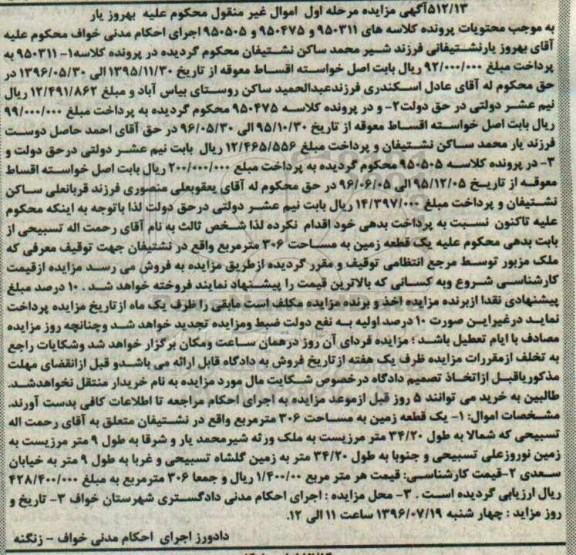 ۵۱۲/۱۳آگهی مزایده مرحله اول اموال غیر منقول محکوم علیه بهروز یار
به موجب محتویات پرونده کلاسه های ۹۵۰۳۱۱ و ۹۵۰۴۷۵ و ۹۵۰۵۰۵ اجرای احکام مدنی خواف محکوم علیه
آقای بهروز یارنشتیفانی فرزند شیر محمد ساکن نشتیفان محکوم گردیده در پرونده کلاسه۱- ۹۵۰۳۱۱ به
پرداخت مبلغ ۹۲/۰۰۰/۰۰۰ ریال بابت اصل خواسته اقساط معوقه از تاریخ ۱۳۹۵/۱۱/۳۰ الی ۱۳۹۶/۰۵/۳۰ در
حق محکوم له آقای عادل اسکندری فرزندعبدالحمید ساکن روستای بیاس آباد و مبلغ ۱۲/۴۹۱/۸۶۲ ریال
نیم عشر دولتی در حق دولت۲- و در پرونده کلاسه ۹۵۰۴۷۵ محکوم گردیده به پرداخت مبلغ ۹۹/۰۰۰/۰۰۰
ریال بابت اصل خواسته اقساط معوقه از تاریخ ۹۵/۱۰/۳۰ الی ۹۶/۰۵/۳۰ در حق آقای احمد حاصل دوست
فرزند یار محمد ساکن نشتیفان و پرداخت مبلغ ۱۲/۴۶۵/۵۵۶ ریال بابت نیم عشر دولتی درحق دولت و
۳- در پرونده کلاسه ۹۵۰۵۰۵ محکوم گردیده به پرداخت مبلغ ۲۰۰/۰۰۰/۰۰۰ ریال بابت اصل خواسته اقساط
معوقه از تاریخ ۹۵/۱۲/۰۵ الی ۹۶/۰۶/۰۵ در حق محکوم له آقای یعقوبعلی منصوری فرزند قربانعلی ساکن
نشتیفان و پرداخت مبلغ ۱۴/۳۹۷/۰۰۰ ریال بابت نیم عشر دولتی درحق دولت لذا باتوجه به اینکه محکوم
علیه تاکنون نسبت به پرداخت بدهی خود اقدام نکرده لذا شخص ثالث به نام آقای رحمت اله تسبیحی از
بابت بدهی محکوم علیه یک قطعه زمین به مساحت ۳۰۶ مترمربع واقع در نشتیفان جهت توقیف معرفی که
ملک مزبور توسط مرجع انتظامی توقیف و مقرر گردیده ازطریق مزایده به فروش می رسد مزایده ازقیمت
کارشناسی شروع وبه کسانی که بالاترین قیمت را پیشنهاد نمایند فروخته خواهد شد . ۱۰ درصد مبلغ
پیشنهادی نقدا ازبرنده مزایده اخذ و برنده مزایده مکلف است مابقی را ظرف یک ماه از تاریخ مزایده پرداخت
نماید درغیراین صورت ۱۰ درصد اولیه به نفع دولت ضبط ومزایده تجدید خواهد شد وچنانچه روز مزایده
مصادف با ایام تعطیل باشد ؛ مزایده فردای آن روز درهمان ساعت ومکان برگزار خواهد شد وشکایات راجع
به تخلف ازمقررات مزایده ظرف یک هفته از تاریخ فروش به دادگاه قابل ارائه می باشدو قبل ازانقضای مهلت
مذکوریاقبل ازاتخاذ تصمیم دادگاه درخصوص شکایت مال مورد مزایده به نام خریدار منتقل نخواهدشد.
طالبین به خرید می توانند ۵ روز قبل ازموعد مزایده به اجرای احکام مراجعه تا اطلاعات کافی بدست آورند.
مشخصات اموال: ۱- یک قطعه زمین به مساحت ۳۰۶ مترمربع واقع در نشتیفان متعلق به آقای رحمت اله
تسبیحی که شمالا به طول ۳۴/۲۰ متر مرزیست به ملک ورثه شیرمحمد یار و شرقا به طول ۹ متر مرزیست به
زمین نوروزعلی تسبیحی و جنوبا به طول ۳۴/۲۰ متر به زمین گلشاه تسبیحی و غربا به طول ۹ متر به خیابان
سعدی ۲-قیمت کارشناسی: قیمت هر متر مربع ۱/۴۰۰/۰۰ ریال و جمعا ۳۰۶ مترمربع به مبلغ ۴۲۸/۴۰۰/۰۰۰
ریال ارزیابی گردیده است . ۳- محل مزایده : اجرای احکام مدنی دادگستری شهرستان خواف ۳- تاریخ و
روز مزاید : چهار شنبه ۱۳۹۶/۰۷/۱۹ ساعت ۱۱ الی ۱۲.
دادورز اجرای احکام مدنی خواف - زنگنه